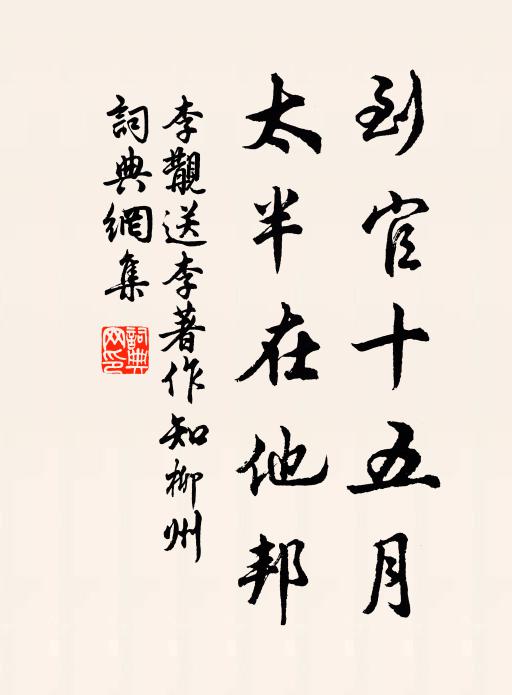 到官十五月
太半在他邦
李覯送李著作知柳州
詞典網集
詞典網印